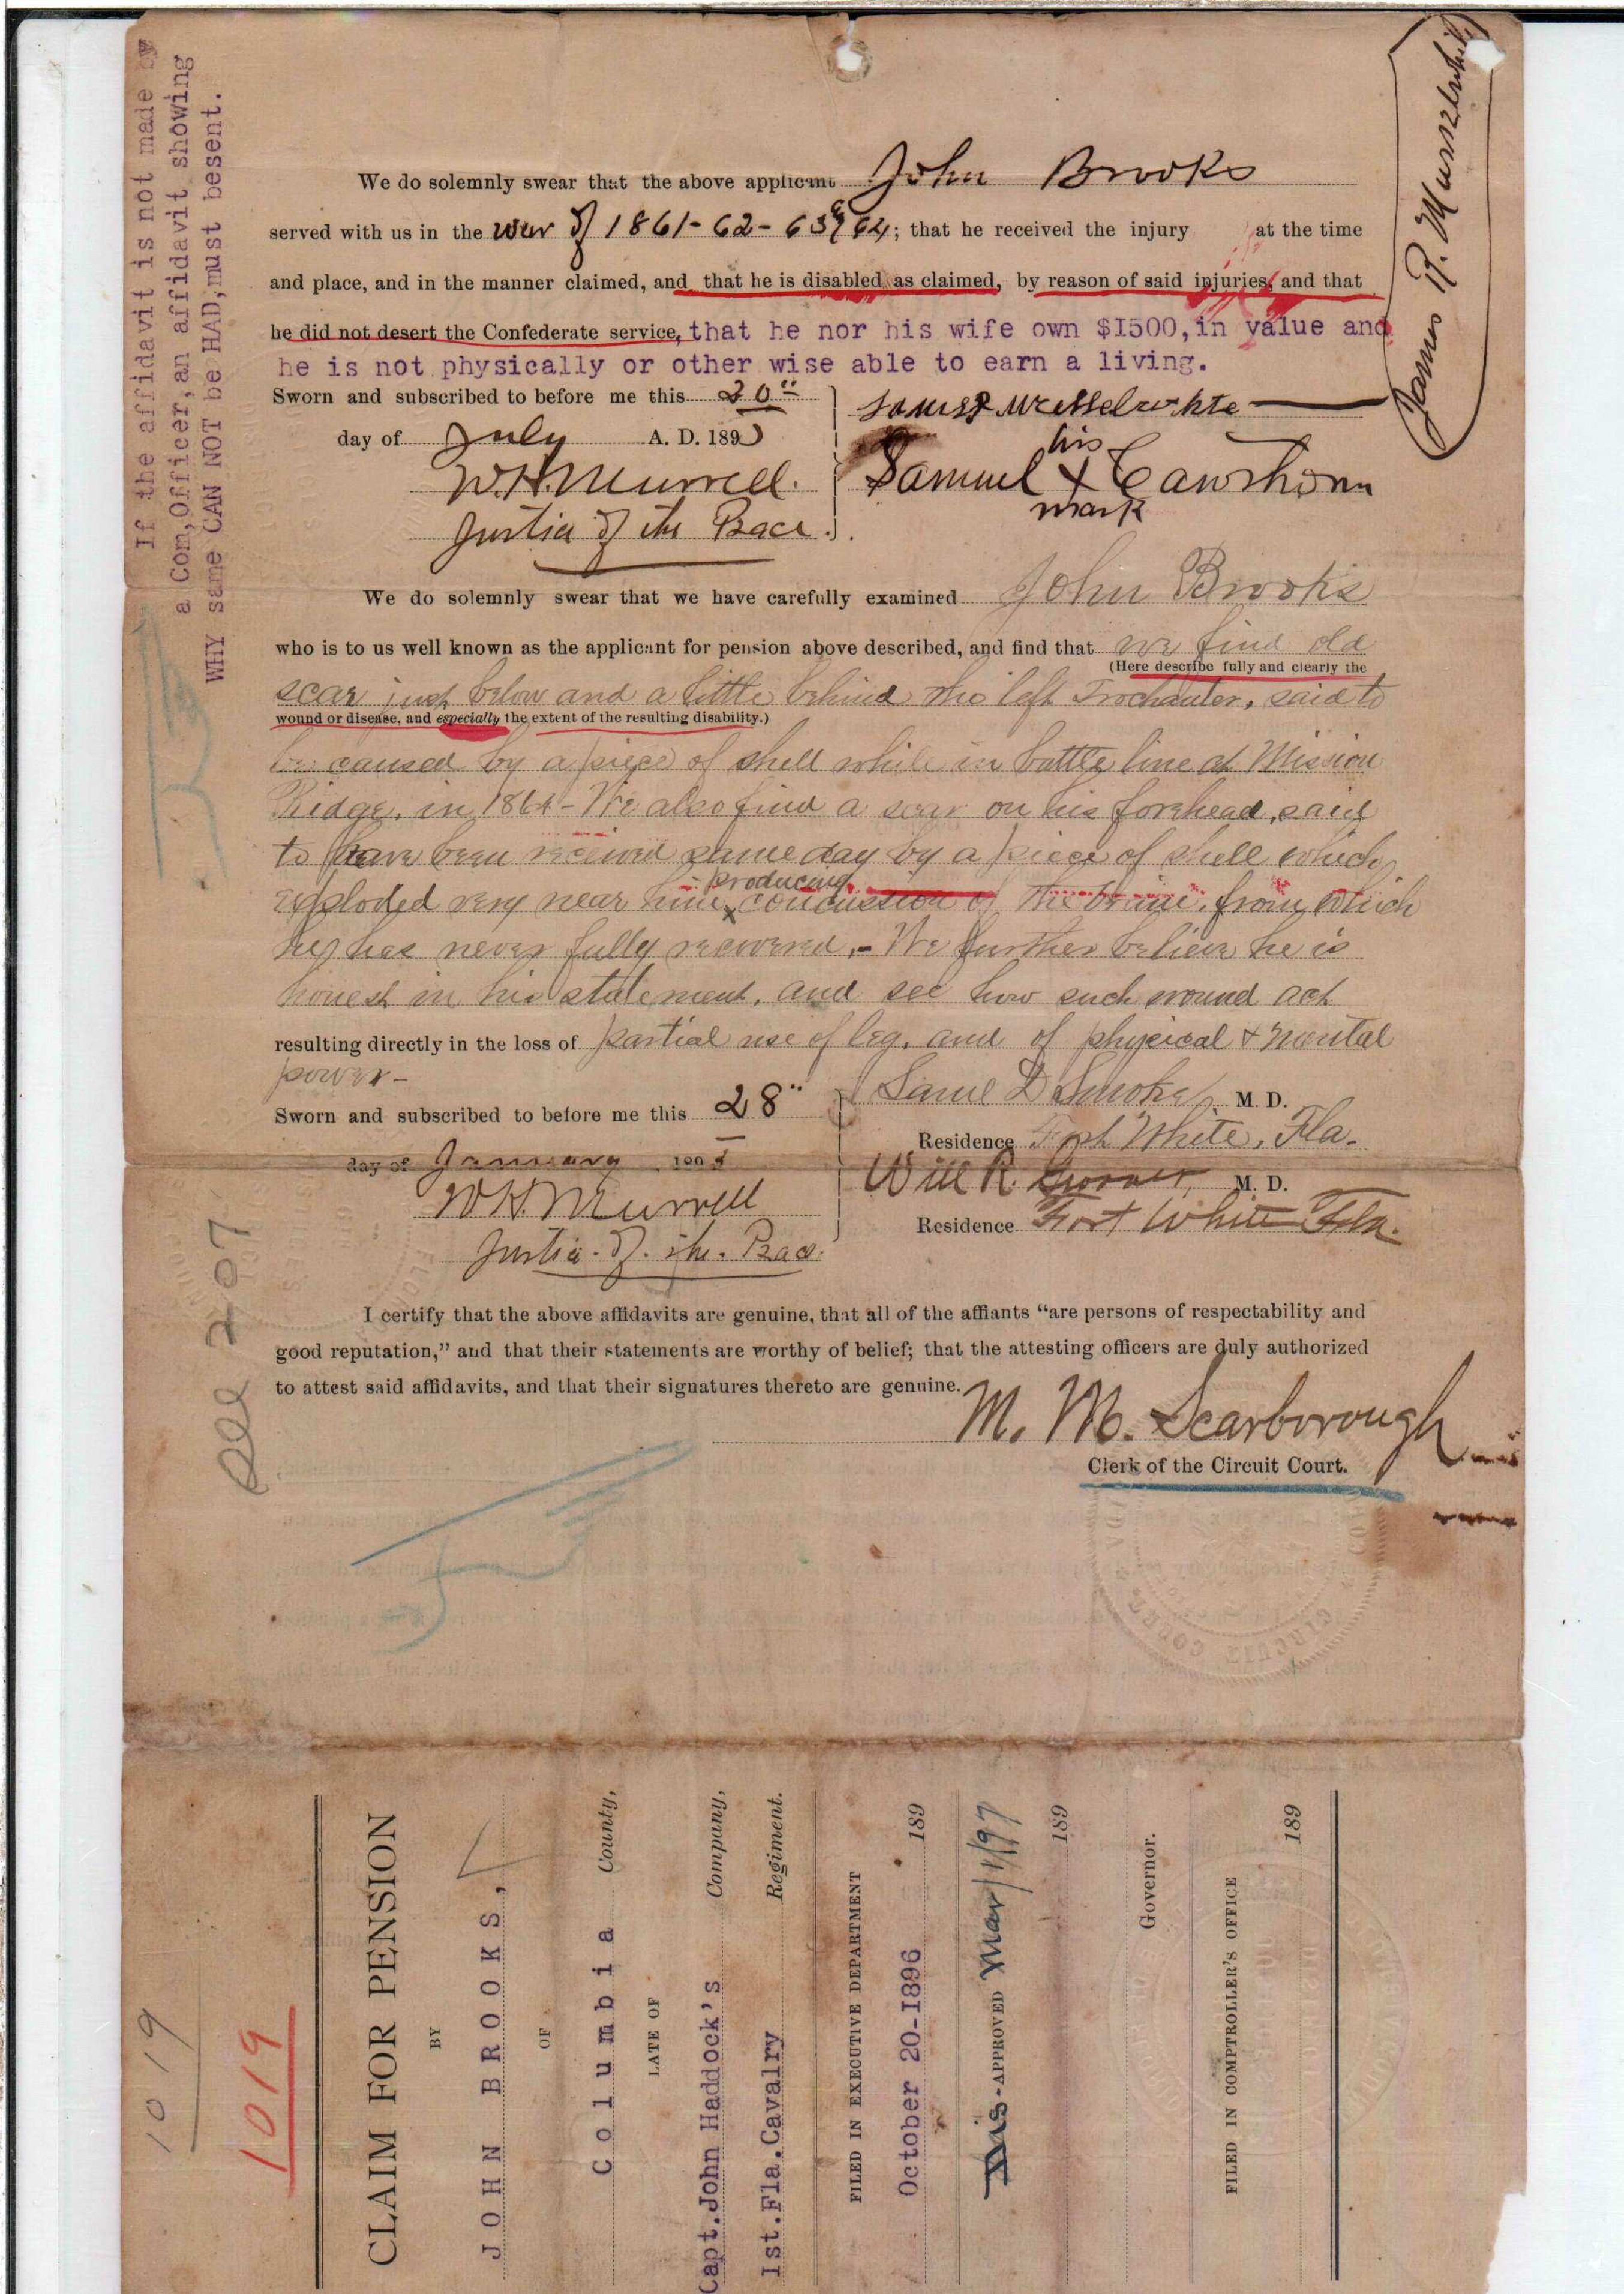 If the affidavit is not made by
a Com,Officer,an affidavit showing
WHY same CAN NOT be HAD,must besent.
James R.
We do solemnly swear that the above applicant John Brooks
served with us in the war of 1861-62-63 & 64; that he received the injury at the time
and place, and in the manner claimed, and that he is disabled as claimed, by reason of said injuries, and that
he did not desert the Confederate service, that he nor his wife own $I500,in value and
he is not physically or other wise able to earn a living.
Sworn and subscribed to before me this 20"
day of July A. D. 189
W.H. Murrell.
Justice of the Peace.
his
Samuel X Cawthorn
mark
We do solemnly swear that we have carefully examined John Brooks
who is to us well known as the applicant for pension above described, and find that we find old
(Here describe fully and clearly the
scar just below and a little behind the left Trochanter, said to
wound or disease, and especially the extent of the resulting disability.)
be caused by a piece of shell while in battle line at Mission
Ridge, in 1864 - We also find a scar on his forehead, said
to have been received same day by a piece of shell which
producing
exploded very near him, x concussion of the brain, from which
he has never fully recovered, - We further believe he is
honest in his statement, and see how such wound act
resulting directly in the loss of partial use of leg, and of physical & mental
power -
Sworn and subscribed to before me this 28"
day of January 189
W.H. Murrell
Justice of the Peace.
Saml D Smoke, M. D.
Residence Fort White, Fla.
Will R. M. D.
Residence Fort White Fla.
See 207
I certify that the above affidavits are genuine, that all of the affiants “are persons of respectability and
good reputation,” and that their statements are worthy of belief; that the attesting officers are duly authorized
to attest said affidavits, and that their signatures thereto are genuine.
M. M. Scarborough
Clerk of the Circuit Court.
CIRCUIT COURT
1019
1019
CLAIM FOR PENSION
BY
JOHN BROOKS,
OF
Columbia County,
LATE OF
Capt.John Haddock's Company,
Ist.Fla.Cavalry Regiment.
FILED IN EXECUTIVE DEPARTMENT
October 20-1896 189
Dis-APPROVED Mar 1/97
189
Governor.
FILED IN COMPTROLLER'S OFFICE
189